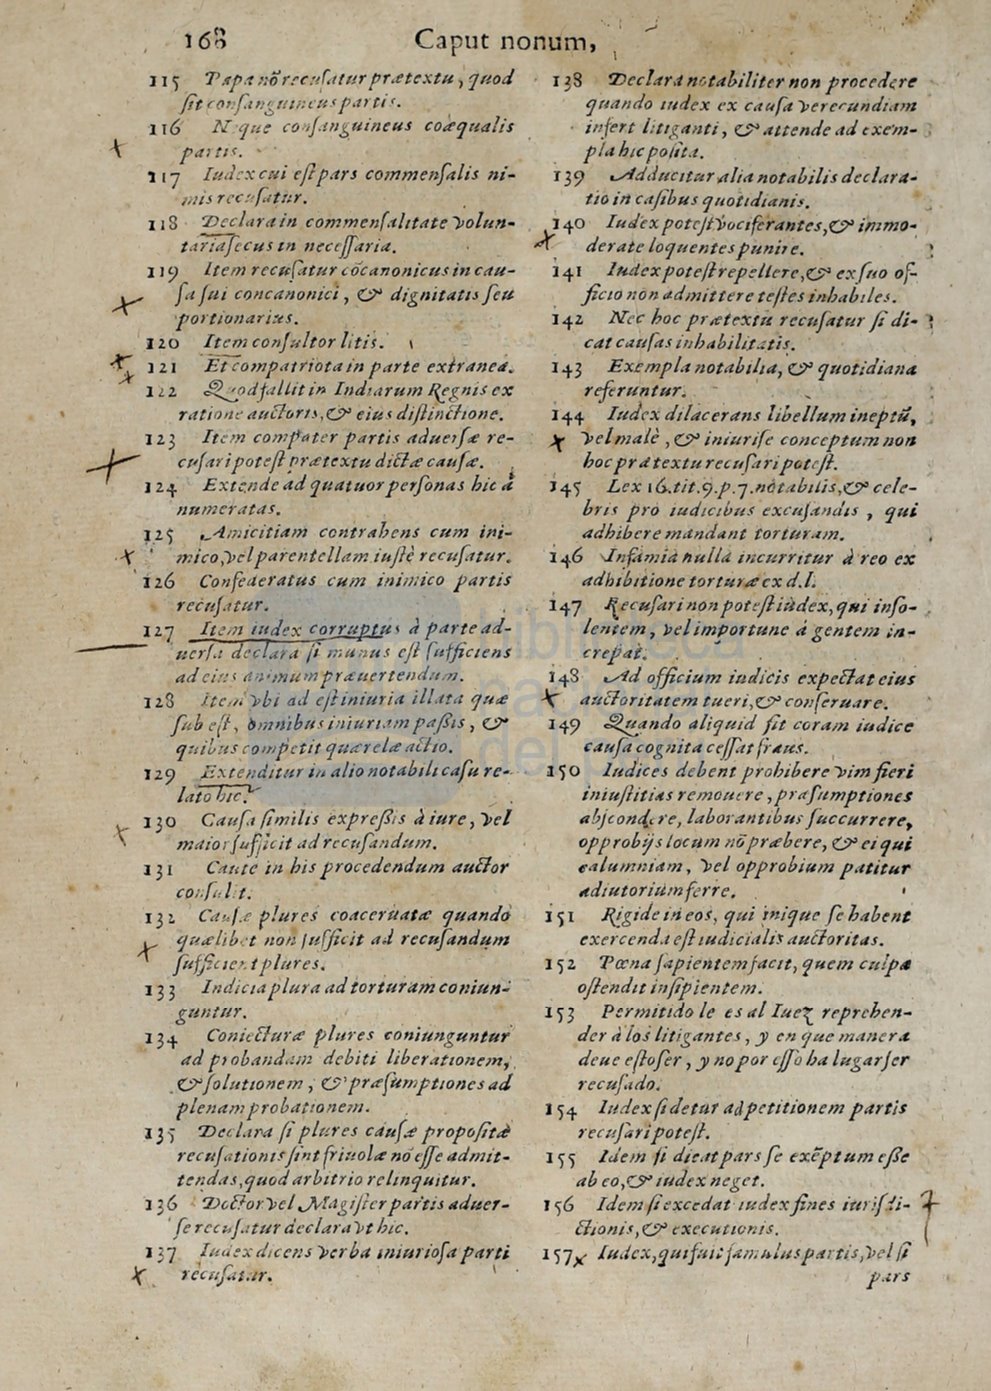 168 Caput nonum,
115 Papa nō recusatur prætextu, quod
sit consanguineus partis.
116 Neque consanguineus coæqualis
partis.
117 Iudex cui est pars commensalis ni-
mis recusatur.
118 Declara in commensalitate volun-
taria secus in necessaria.
119 Item recusatur cōcanonicus in cau-
sa sui concanonici, & dignitatis seu
portionarius.
120 Item consultor litis.
121 Et compatriota in parte extranea.
122 Quod fallit in Indiarum Regnis ex
ratione auctoris, & eius distinctione.
123 Item compater partis aduersæ re-
cusari potest prætextu dictæ causæ.
124 Extende ad quatuor personas hic à
numeratas.
125 Amicitiam contrahens cum ini-
mico, vel parentellam iustè recusatur.
126 Confederatus cum inimico partis
recusatur.
127 Item iudex corruptus à parte ad-
uersa declara si munus est sufficiens
ad eius animum præuertendum.
128 Item vbi ad est iniuria illata quæ
sub est, omnibus iniuriam passis, &
quibus competit quærelæ actio.
129 Extenditur in alio notabili casu re-
lato hic.
130 Causa similis expressis à iure, vel
maior sufficit ad recusandum.
131 Caute in his procedendum auctor
consulit.
132 Causæ plures coaceruatæ quando
quælibet non sufficit ad recusandum
sufficient plures.
133 Indicia plura ad torturam coniun-
guntur.
134 Coniecturæ plures coniunguntur
ad probandam debiti liberationem,
& solutionem, & præsumptiones ad
plenam probationem.
135 Declara si plures causæ propositæ
recusationis sint friuolæ nō esse admit-
tendas, quod arbitrio relinquitur.
136 Doctor vel Magister partis aduer-
se recusatur declara vt hic.
137 Iudex dicens verba iniuriosa parti
recusatur.
138 Declara notabiliter non procedere
quando iudex ex causa verecundiam
infert litiganti, & attende ad exem-
pla hic posita.
139 Adducitur alia notabilis declara-
tio in casibus quotidianis.
140 Iudex potest vociferantes, & immo-
derate loquentes punire.
141 Iudex potest repellere, & ex suo of-
ficio non admittere testes inhabiles.
142 Nec hoc prætextu recusatur si di-
cat causas inhabilitatis.
143 Exempla notabilia, & quotidiana
referuntur.
144 Iudex dilacerans libellum ineptū,
vel malè, & iniurise conceptum non
hoc prætextu recusari potest.
145 Lex 16. tit. 9. p. 7. notabilis, & cele-
bris pro iudicibus excusandis, qui
adhibere mandant torturam.
146 Infamia nulla incurritur à reo ex
adhibitione torturæ ex d. l.
147 Recusari non potest iudex, qui inso-
lentem, vel importune agentem in-
crepat.
148 Ad officium iudicis expectat eius
auctoritatem tueri, & conseruare.
149 Quando aliquid fit coram iudice
causa cognita cessat fraus.
150 Iudices debent prohibere vim fieri
iniustitias remouere, præsumptiones
abscondere, laborantibus succurrere,
opprobijs locum nō præbere, & ei qui
calumniam, vel opprobium patitur
adiutorium ferre.
151 Rigide in eos, qui inique se habent
exercenda est iudicialis auctoritas.
152 Pœna sapientem facit, quem culpa
ostendit insipientem.
153 Permitido le es al Iuez reprehen-
der à los litigantes, y en que manera
deue esto ser, y no por esso ha lugar ser
recusado.
154 Iudex si detur ad petitionem partis
recusari potest.
155 Idem si dicat pars se exēptum esse
ab eo, & iudex neget.
156 Idem si excedat iudex fines iurisdi-
ctionis, & executionis.
157 Iudex, qui fuit famulus partis, vel si
pars